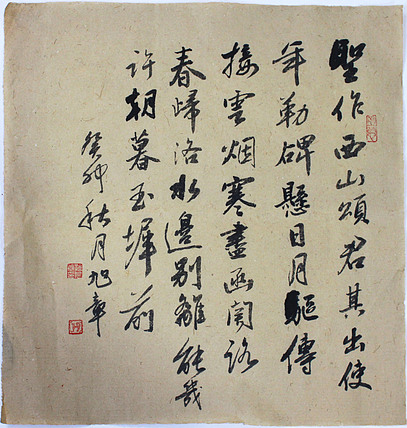 聖作西山頌君其出使
年勒碑懸日月驅傳
接雲烟寒盡函關路
春歸洛水邊別離能幾
許朝暮玉墀前
癸卯秋月旭章